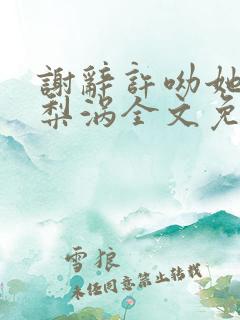 謝辭許呦她
梨涡全文免
雪狼
未任同意禁止转载